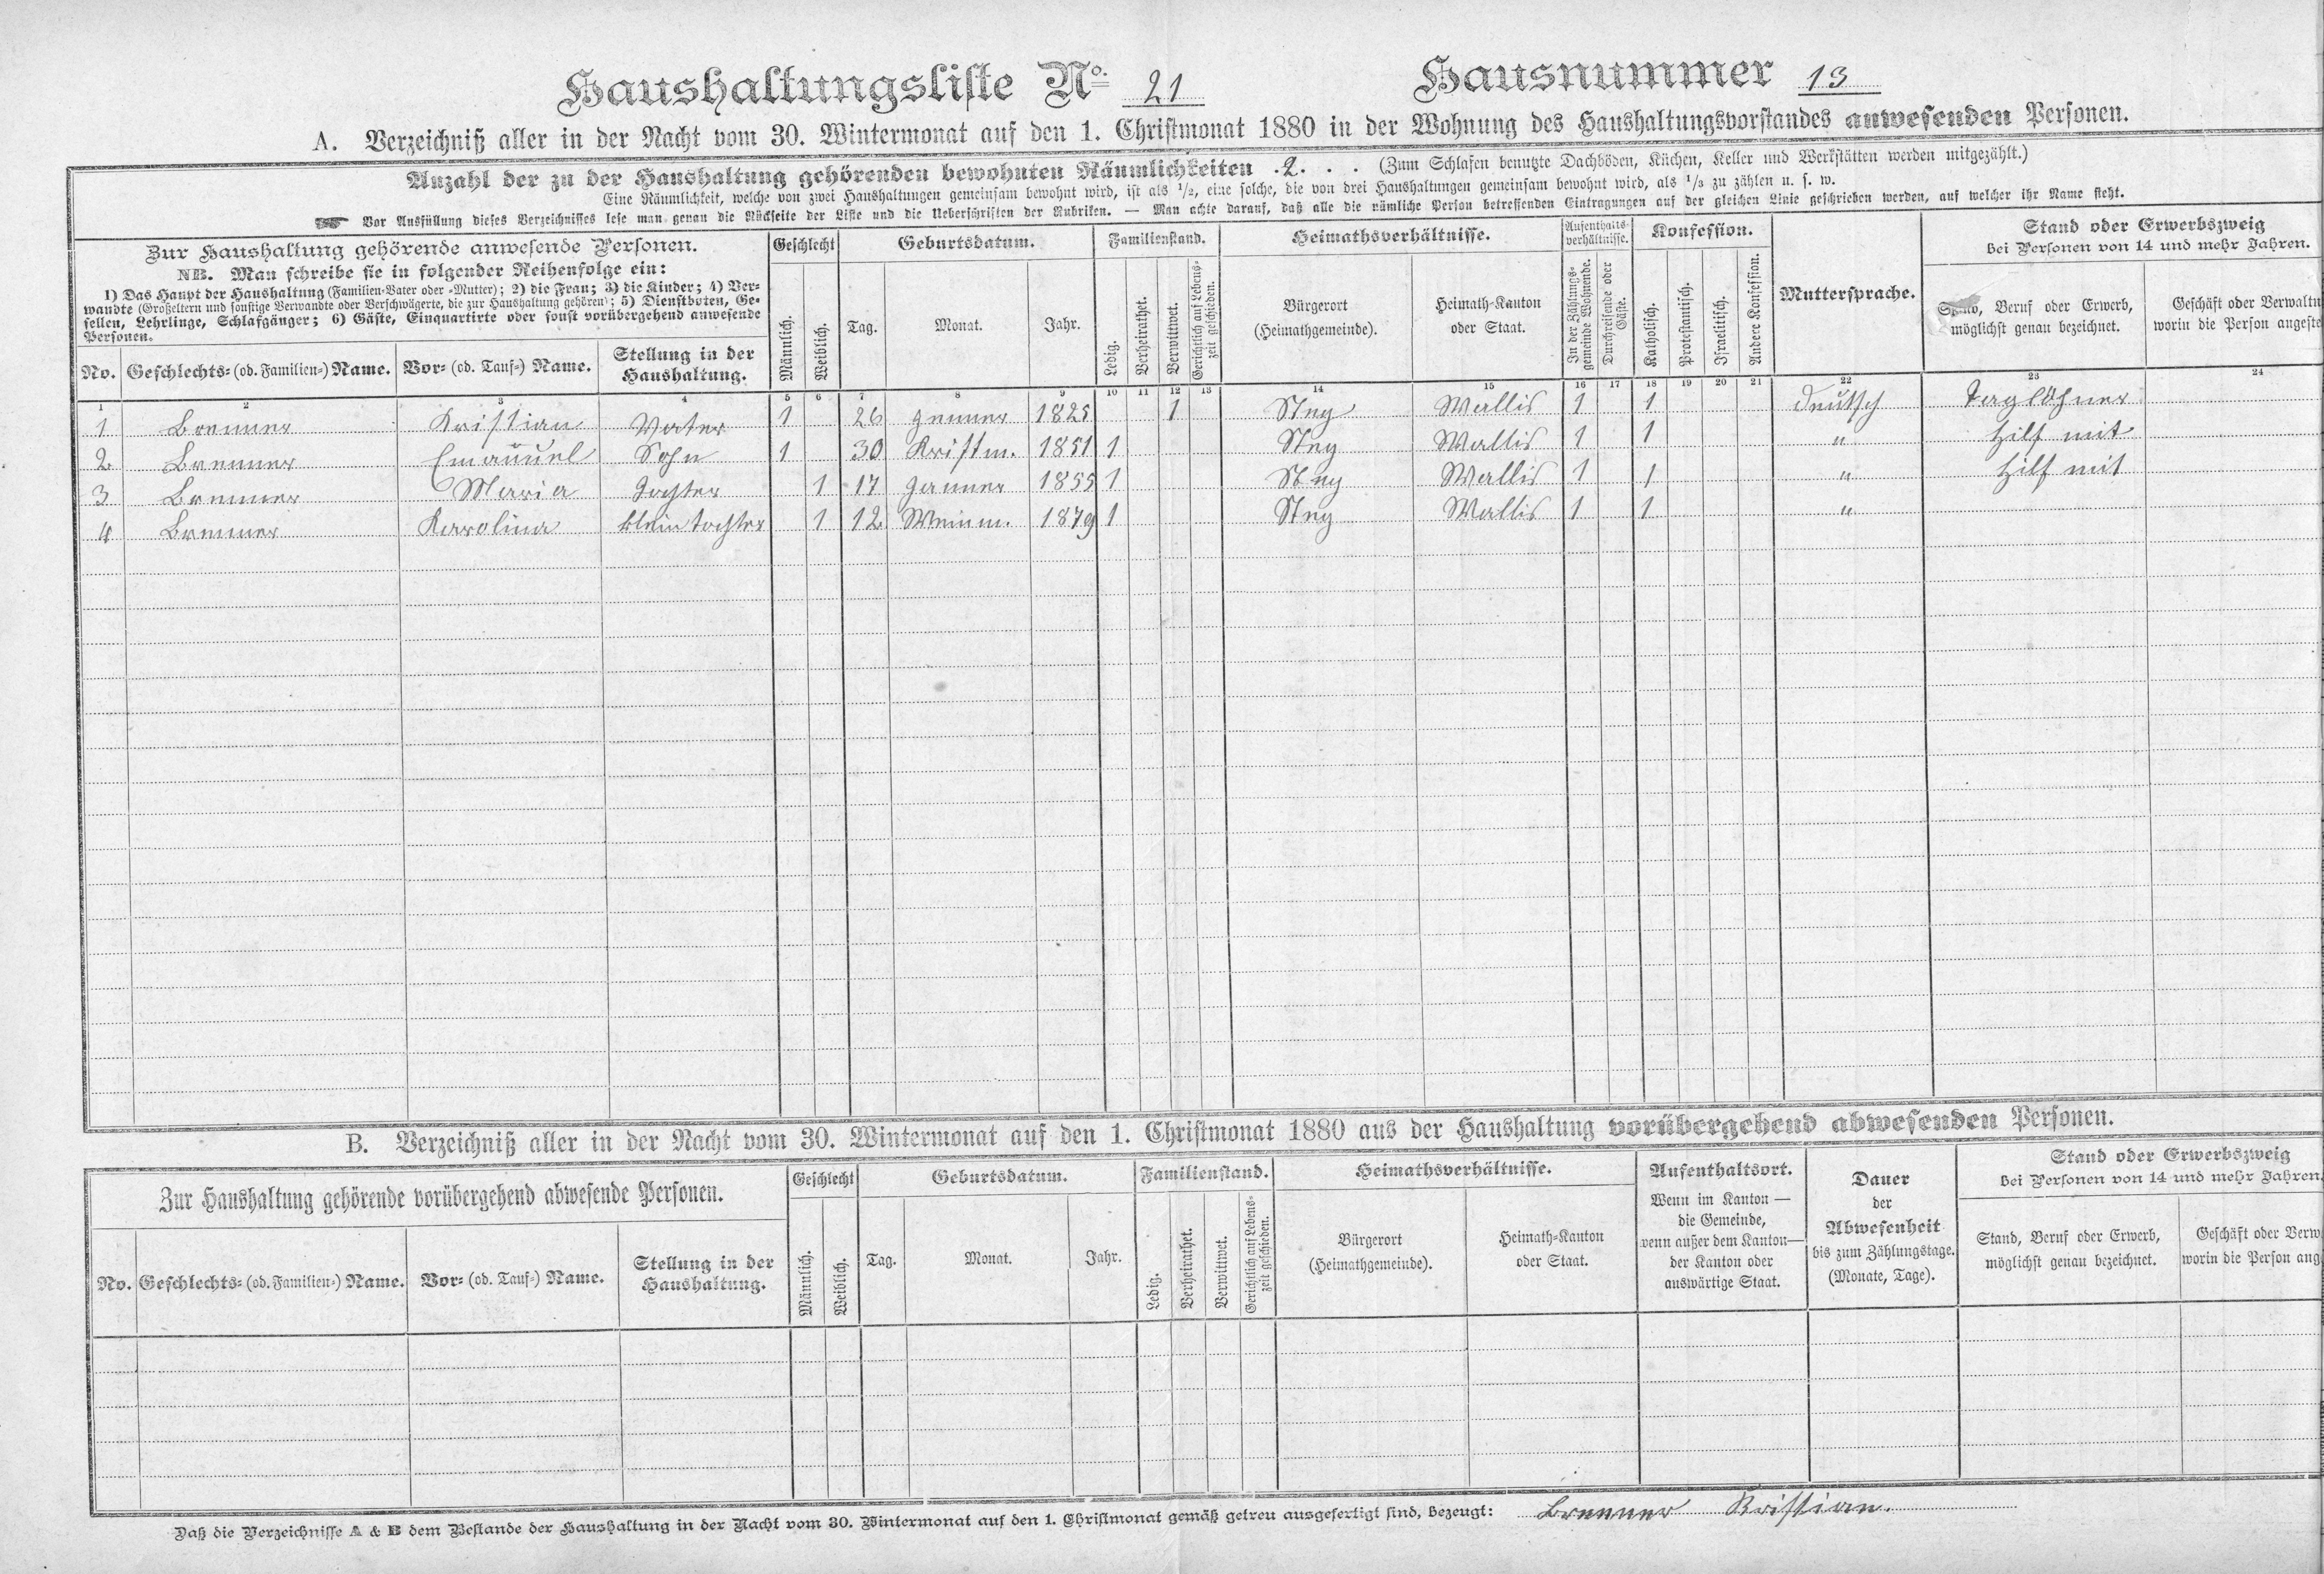 Haushaltungsliste No. 21 Hausnummer 13
A. Verzeichniß aller in der Nacht vom 30. Wintermonat auf den 1. Christmonat 1880 in der Wohnung des Haushaltungsvorstandes anwesenden Personen.
Anzahl der zu der Haushaltung gehörenden bewohnten Räumlichkeiten . 2 . . . (Zum Schlafen benutzte Dachböden, Küchen, Keller und Werkstätten werden mitgezählt.)
Eine Räumlichkeit, welche von zwei Haushaltungen gemeinsam bewohnt wird, ist als 1/2, eine solche, die von drei Haushaltungen gemeinsam bewohnt wird, als 1/3 zu zählen u. s. w.
Vor Ausfüllung dieses Verzeichnisses lese man genau die Rückseite der Liste und die Ueberschriften der Rubriken. — Man achte darauf, daß alle die nämliche Person betreffenden Eintragungen auf der gleichen Linie geschrieben werden, auf welcher ihr Name steht.
Zur Haushaltung gehörende anwesende Personen.
NB. Man schreibe sie in folgender Reihenfolge ein:
1) Das Haupt der Haushaltung (Familien-Vater oder -Mutter); 2) die Frau; 3) die Kinder; 4) Ver-
wandte (Großeltern und sonstige Verwandte oder Verschwägerte, die zur Haushaltung gehören); 5) Dienstboten, Ge-
sellen, Lehrlinge, Schlafgänger; 6) Gäste, Einquartirte oder sonst vorübergehend anwesende
Personen.
No. Geschlechts- (od. Familien-) Name. Vor- (od. Tauf-) Name. Stellung in der
Haushaltung.
Geschlecht
Männlich. Weiblich.
Geburtsdatum.
Tag. Monat. Jahr.
Familienstand.
Ledig. Verheirathet. Verwittwet. Gerichtlich auf Lebens-
zeit geschieden.
Heimathsverhältnisse.
Bürgerort
(Heimathgemeinde).
Heimath-Kanton
oder Staat.
Aufenthalts-
verhältnisse.
In der Zählungs-
gemeinde Wohnende.
Durchreisende oder
Gäste.
Konfession.
Katholisch. Protestantisch. Israelitisch. Andere Konfession.
Muttersprache.
Stand oder Erwerbszweig
bei Personen von 14 und mehr Jahren.
Stand, Beruf oder Erwerb,
möglichst genau bezeichnet.
Geschäft oder Verwaltu
worin die Person angeste
1 2 3 4 5 6 7 8 9 10 11 12 13 14 15 16 17 18 19 20 21 22 23 24
1 Brenner Kristian Vater 1 26 Jenner 1825 1 Steg Wallis 1 1 deutsch Taglöhner
2 Brenner Emanuel Sohn 1 30 Kristm. 1851 1 Steg Wallis 1 1 " hilf mit
3 Brenner Maria Tochter 1 17 Janner 1855 1 Steg Wallis 1 1 " hilf mit
4 Brenner Karolina klein tochter 1 12 Weinm. 1879 1 Steg Wallis 1 1 "
B. Verzeichniß aller in der Nacht vom 30. Wintermonat auf den 1. Christmonat 1880 aus der Haushaltung vorübergehend abwesenden Personen.
Zur Haushaltung gehörende vorübergehend abwesende Personen.
No. Geschlechts- (od. Familien-) Name. Vor- (od. Tauf-) Name. Stellung in der
Haushaltung.
Geschlecht
Männlich. Weiblich.
Geburtsdatum.
Tag. Monat. Jahr.
Familienstand.
Ledig. Verheirathet. Verwittwet. Gerichtlich auf Lebens-
zeit geschieden.
Heimathsverhältnisse.
Bürgerort
(Heimathgemeinde).
Heimath-Kanton
oder Staat.
Aufenthaltsort.
Wenn im Kanton —
die Gemeinde,
wenn außer dem Kanton—
der Kanton oder
auswärtige Staat.
Dauer
der
Abwesenheit
bis zum Zählungstage.
(Monate, Tage).
Stand oder Erwerbszweig
bei Personen von 14 und mehr Jahren.
Stand, Beruf oder Erwerb,
möglichst genau bezeichnet.
Geschäft oder Verw
worin die Person ang
Daß die Verzeichnisse A & B dem Bestande der Haushaltung in der Nacht vom 30. Wintermonat auf den 1. Christmonat gemäß getreu ausgefertigt sind, bezeugt: Brenner Kristian.